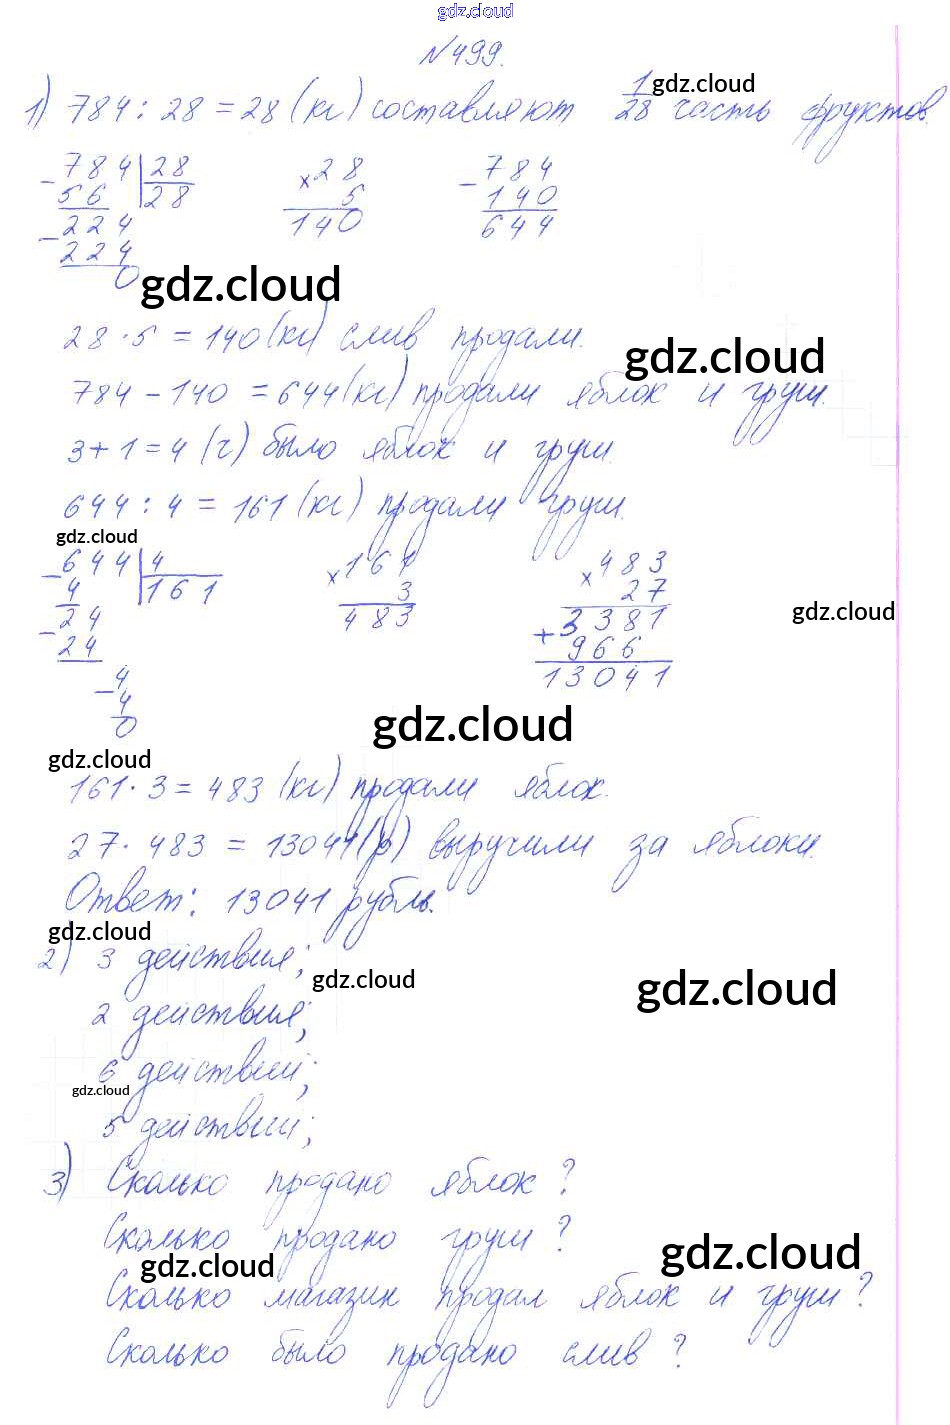 gdz.cloud
№499.
1) 784 : 28 = 28 (кг) составляют 1/28 часть фруктов.
gdz.cloud
- 784 | 28    × 28    - 784
56 | 28    5    140
- 224    140    644
224
0
gdz.cloud
28 · 5 = 140 (кг) слив продали.
gdz.cloud
784 - 140 = 644 (кг) продали яблок и груш.
3 + 1 = 4 (ч) было яблок и груш.
644 : 4 = 161 (кг) продали груш.
gdz.cloud
- 644 | 4    × 161    × 483
4 | 161    3    27
- 24    483    + 3381
24    966
- 4    13041
4
0
gdz.cloud
gdz.cloud
gdz.cloud
161 · 3 = 483 (кг) продали яблок.
27 · 483 = 13041 (р) выручили за яблоки.
Ответ: 13041 рубль.
gdz.cloud
2) 3 действия;
gdz.cloud
gdz.cloud
2 действия;
6 действий;
gdz.cloud
5 действий;
3) Сколько продано яблок?
Сколько продано груш?
gdz.cloud
gdz.cloud
Сколько магазин продал яблок и груш?
Сколько было продано слив?